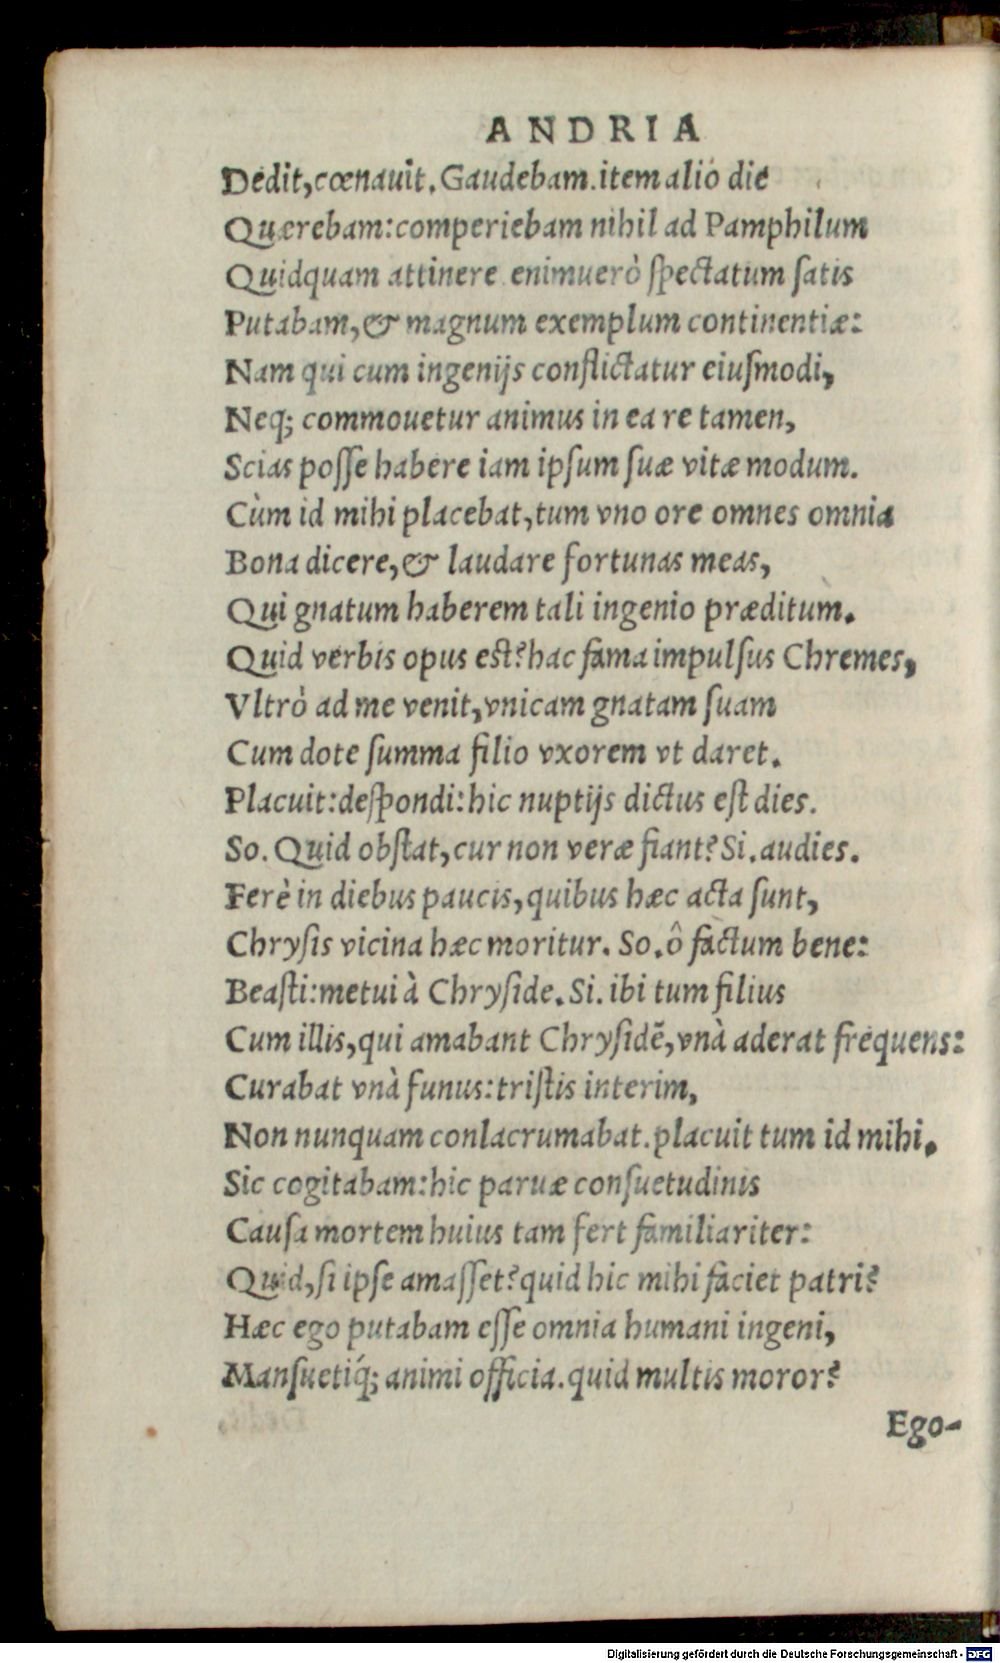 ANDRIA
Dedit, cœnauit. Gaudebam. item alio die
Quærebam: comperiebam nihil ad Pamphilum
Quidquam attinere enimuerò ſpectatum ſatis
Putabam, & magnum exemplum continentiæ:
Nam qui cum ingenijs conflictatur eiuſmodi,
Neq; commouetur animus in ea re tamen,
Scias poſſe habere iam ipſum ſuæ vitæ modum.
Cùm id mihi placebat, tum vno ore omnes omnia
Bona dicere, & laudare fortunas meas,
Qui gnatum haberem tali ingenio præditum.
Quid verbis opus est? hac fama impulſus Chremes,
Vltrò ad me venit, vnicam gnatam ſuam
Cum dote ſumma filio vxorem vt daret.
Placuit: deſpondi: hic nuptijs dictus eſt dies.
So. Quid obſtat, cur non veræ fiant? Si. audies.
Ferè in diebus paucis, quibus hæc acta ſunt,
Chryſis vicina hæc moritur. So. ô factum bene:
Beaſti: metui à Chryſide. Si. ibi tum filius
Cum illis, qui amabant Chryſidẽ, vnà aderat frequens:
Curabat vnà funus: triſtis interim,
Non nunquam conlacrumabat. placuit tum id mihi.
Sic cogitabam: hic paruæ conſuetudinis
Cauſa mortem huius tam fert familiariter:
Quid, ſi ipſe amaſſet? quid hic mihi faciet patri?
Hæc ego putabam eſſe omnia humani ingeni,
Manſuetiq́; animi officia. quid multis moror?
Ego-
Digitalisierung gefördert durch die Deutsche Forschungsgemeinschaft - DFG